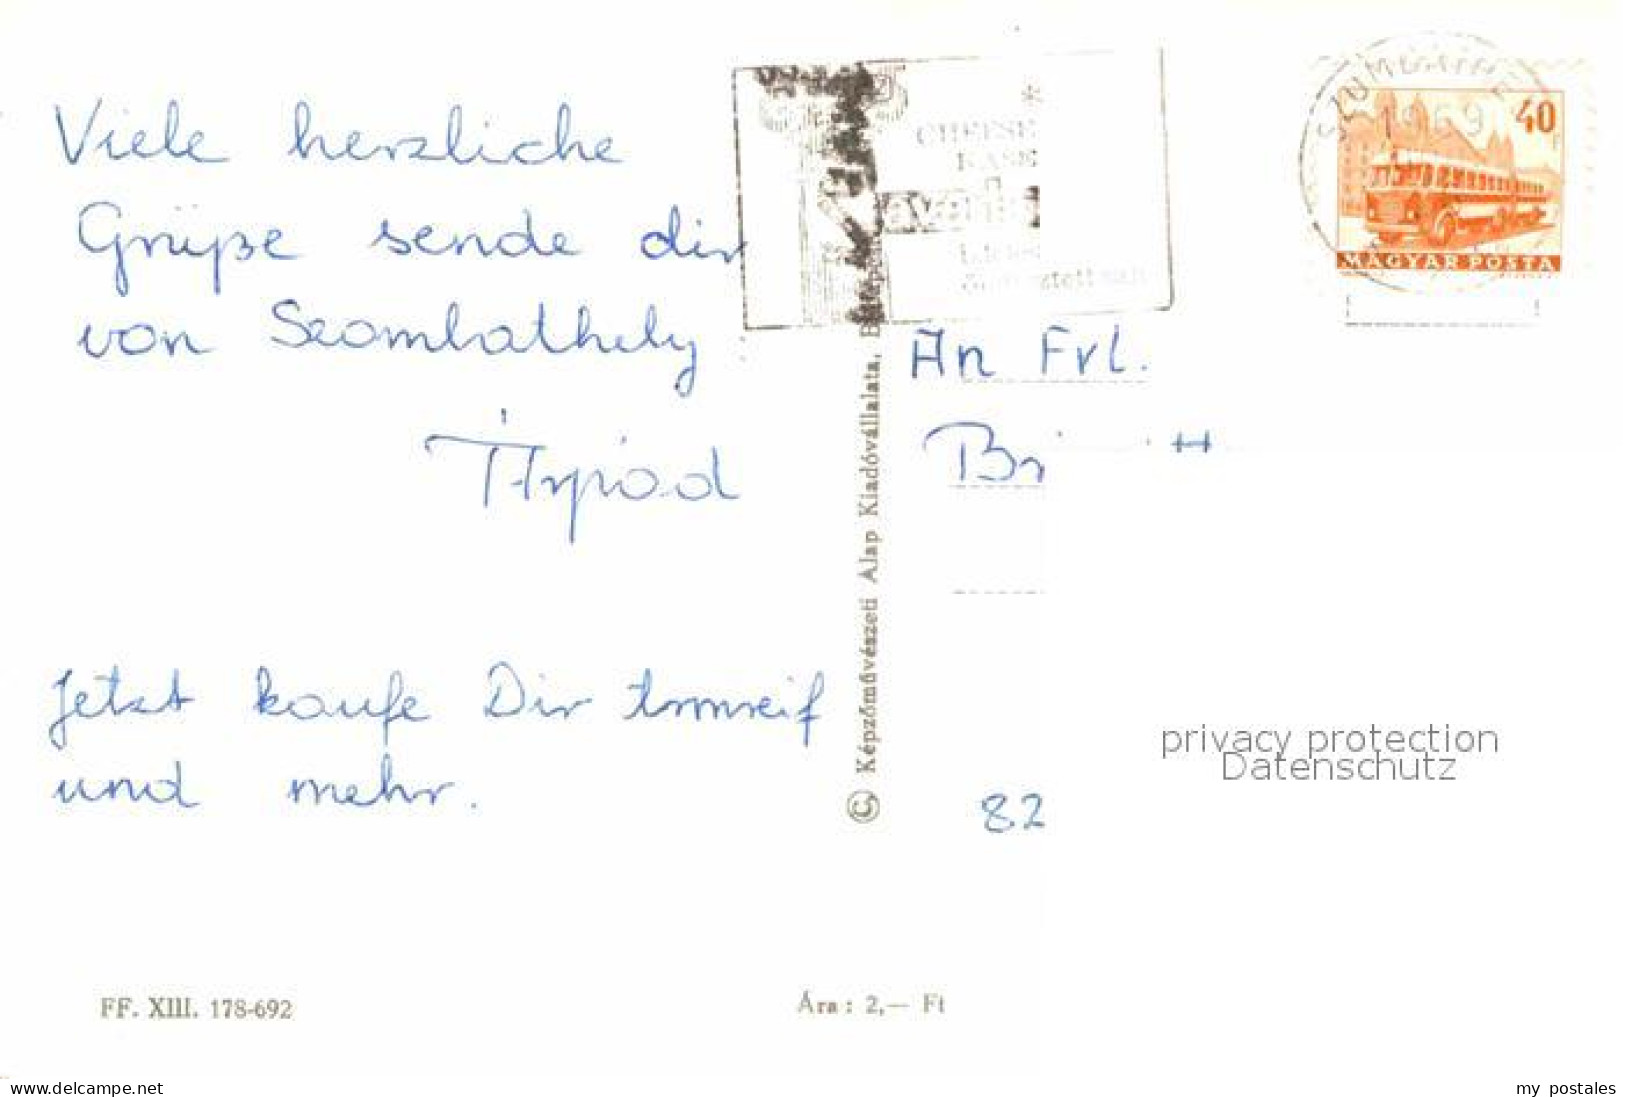 Viele herzliche
Grüße sende dir
von Szombathely
Árpád
Jetzt kaufe Dir
und mehr.
FF. XIII. 178-692
Ára: 2,— Ft
© Képzőművészeti Alap Kiadóvállalata,
CHEESE
KÄSE
1969
40
MAGYAR POSTA
An Frl.
82
privacy protection
Datenschutz
www.delcampe.net
my postales